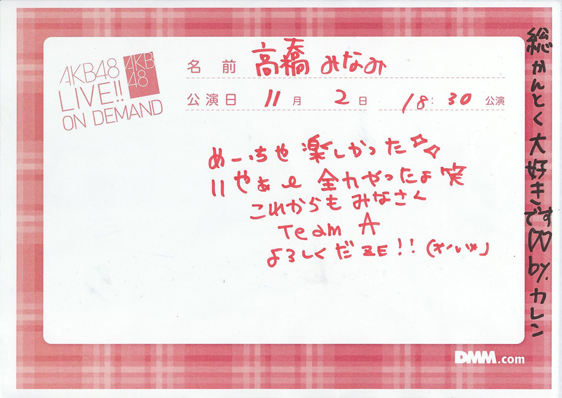 AKB48
LIVE!!
ON DEMAND
AKB
48
名 前 高橋みなみ
公演日 11月 2日 18:30 公演
めーっちゃ楽しかった☆☆
いやぁ〜 全力やったよ笑
これからもみなさん
Team A
よろしくだZE!!
総かんとく大好きです♡ by.カレン
DMM.com